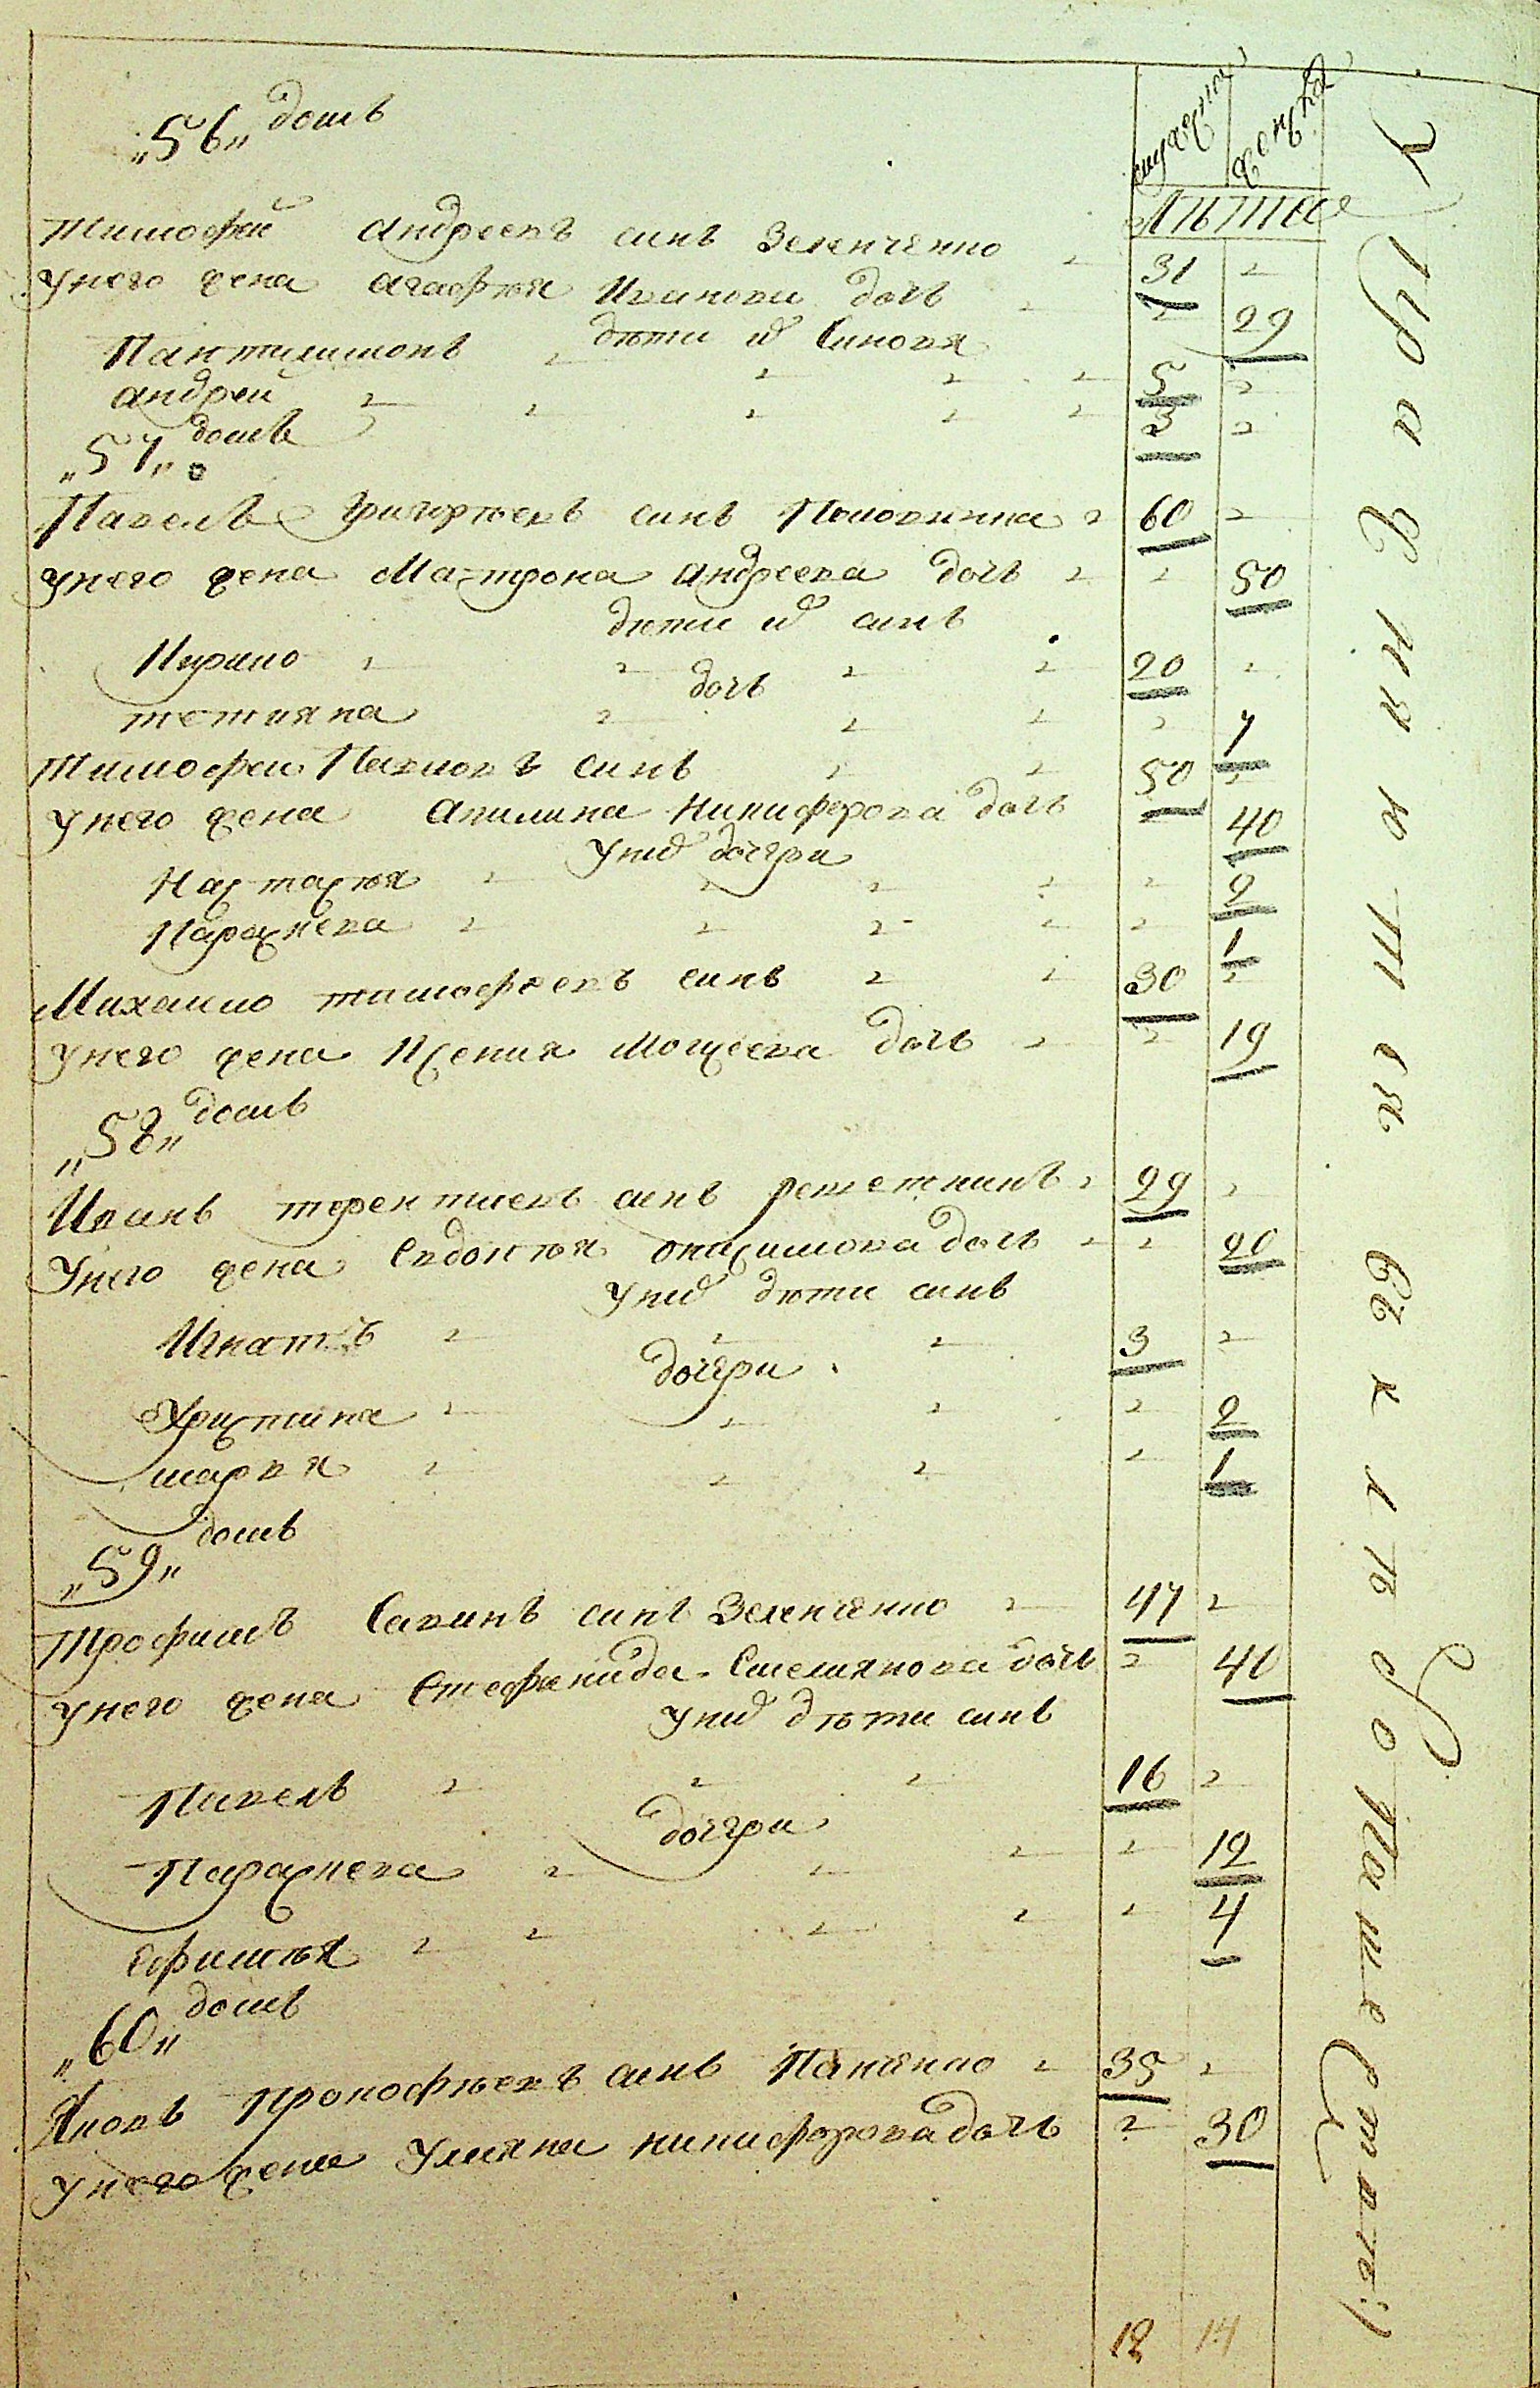 мужеска женска
лѣта
„56„ домъ
Тимофей Андреевъ синъ Зеленченко 31
У него жена Агафѣя Иванова дочь 29
дѣти их Синовя
Пантилимонъ 5
Андрей 3
„57„ домъ
Павелъ Григорѣевъ синъ Половинка 60
У него жена Матрона Андреева дочь 50
дѣти их синъ
Кирило 20
дочь
Тетияна 7
Тимофеи Павловъ синъ 50
У него жена Акилина Никифорова дочь 40
У них дочери
Настасѣя 2
Параскева 1
Михаило Тимофѣевъ синъ 30
У него жена Ксения Мосѣева дочь 19
„58„ домъ
Иванъ Терентиевъ синъ Решетникъ 29
У него жена Евдокѣя Онисимова дочь 20
У них дѣти синъ
Игнатъ 3
дочери
Христина 2
Марвя 1
„59„ домъ
Трофимъ Савинъ синъ Зеленченко 47
У него жена Стефанида Емелянова дочь 40
У них дѣти синъ
Павелъ 16
дочери
Параскева 12
Ефимѣя 4
„60„ домъ
Яковъ Прокофѣевъ синъ Паненко 35
У него жена Уляна Никифорова дочь 30
18 14